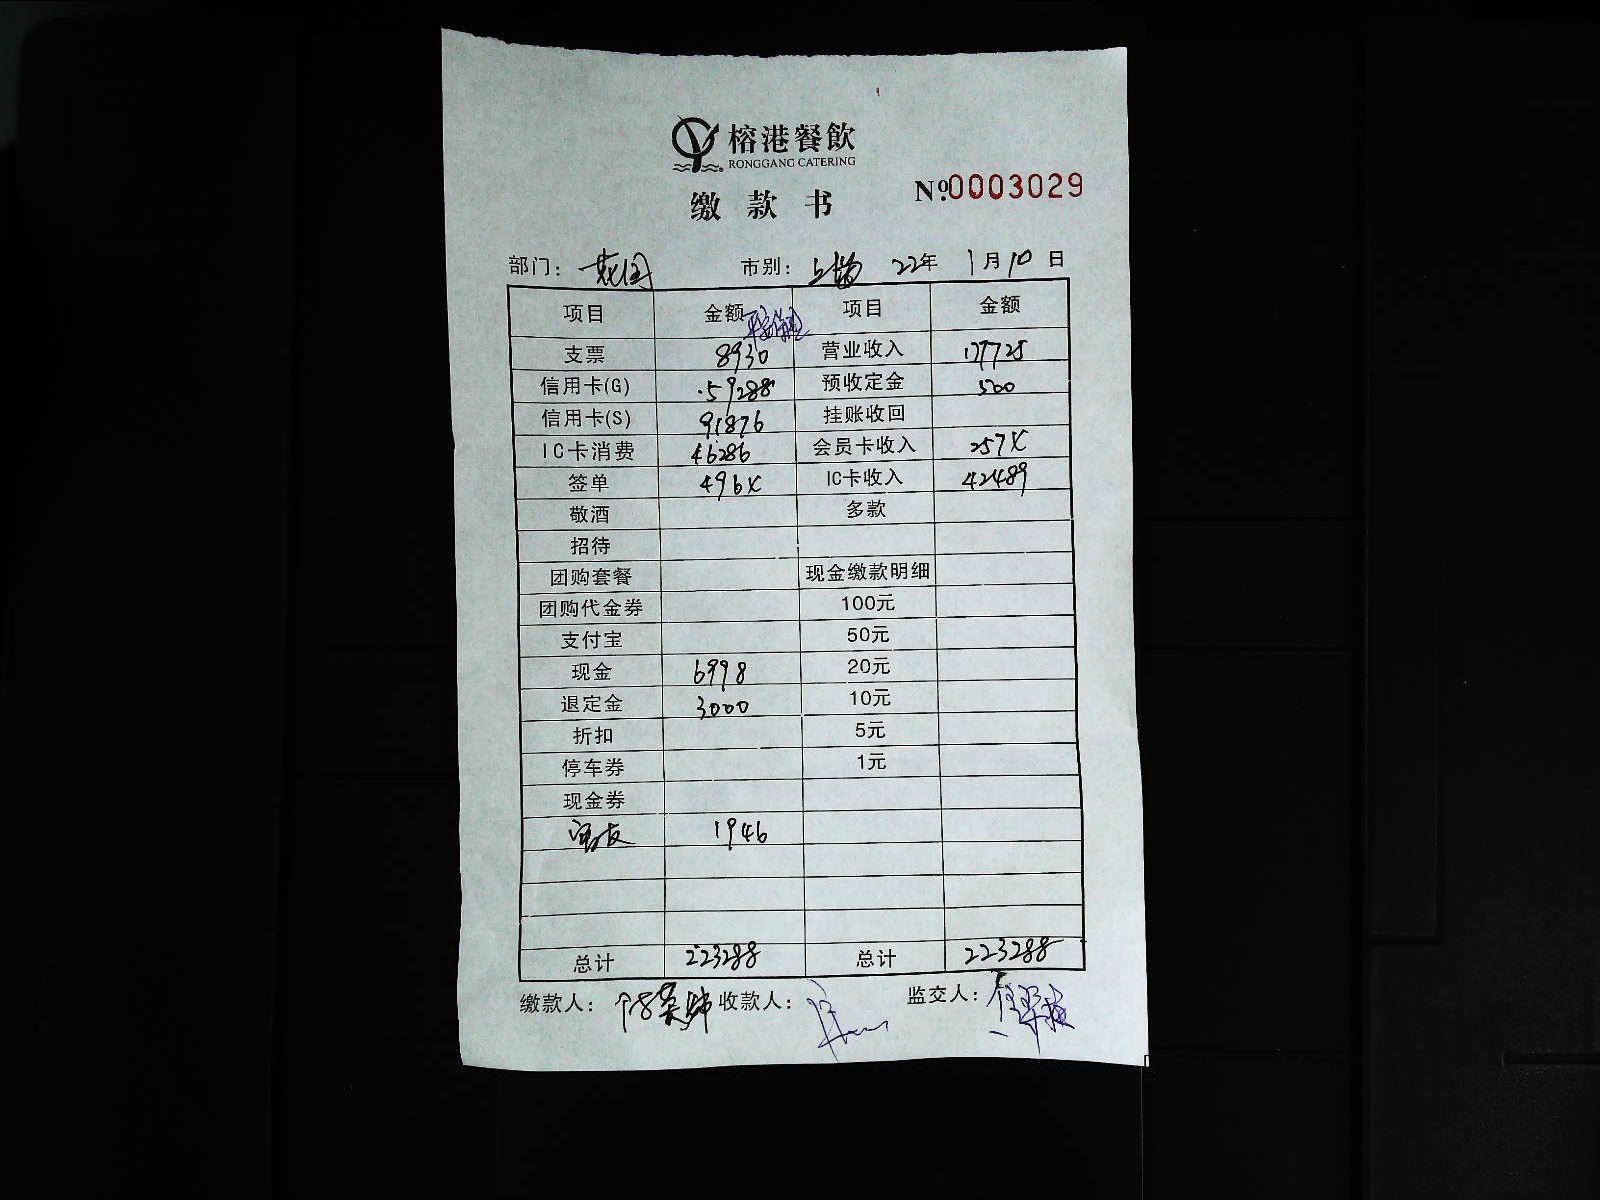 榕港餐飲
RONGGANG CATERING
缴款书
№0003029
部门：花园 市别： 22年 1月10日
项目 金额 项目 金额
支票 8930 营业收入 177725
信用卡(G) 59288 预收定金 500
信用卡(S) 91876 挂账收回
IC卡消费 46286 会员卡收入 2574
签单 4964 IC卡收入 42489
敬酒 多款
招待
团购套餐 现金缴款明细
团购代金券 100元
支付宝 50元
现金 6998 20元
退定金 3000 10元
折扣 5元
停车券 1元
现金券
1946
总计 223288 总计 223288
缴款人： 收款人： 监交人：